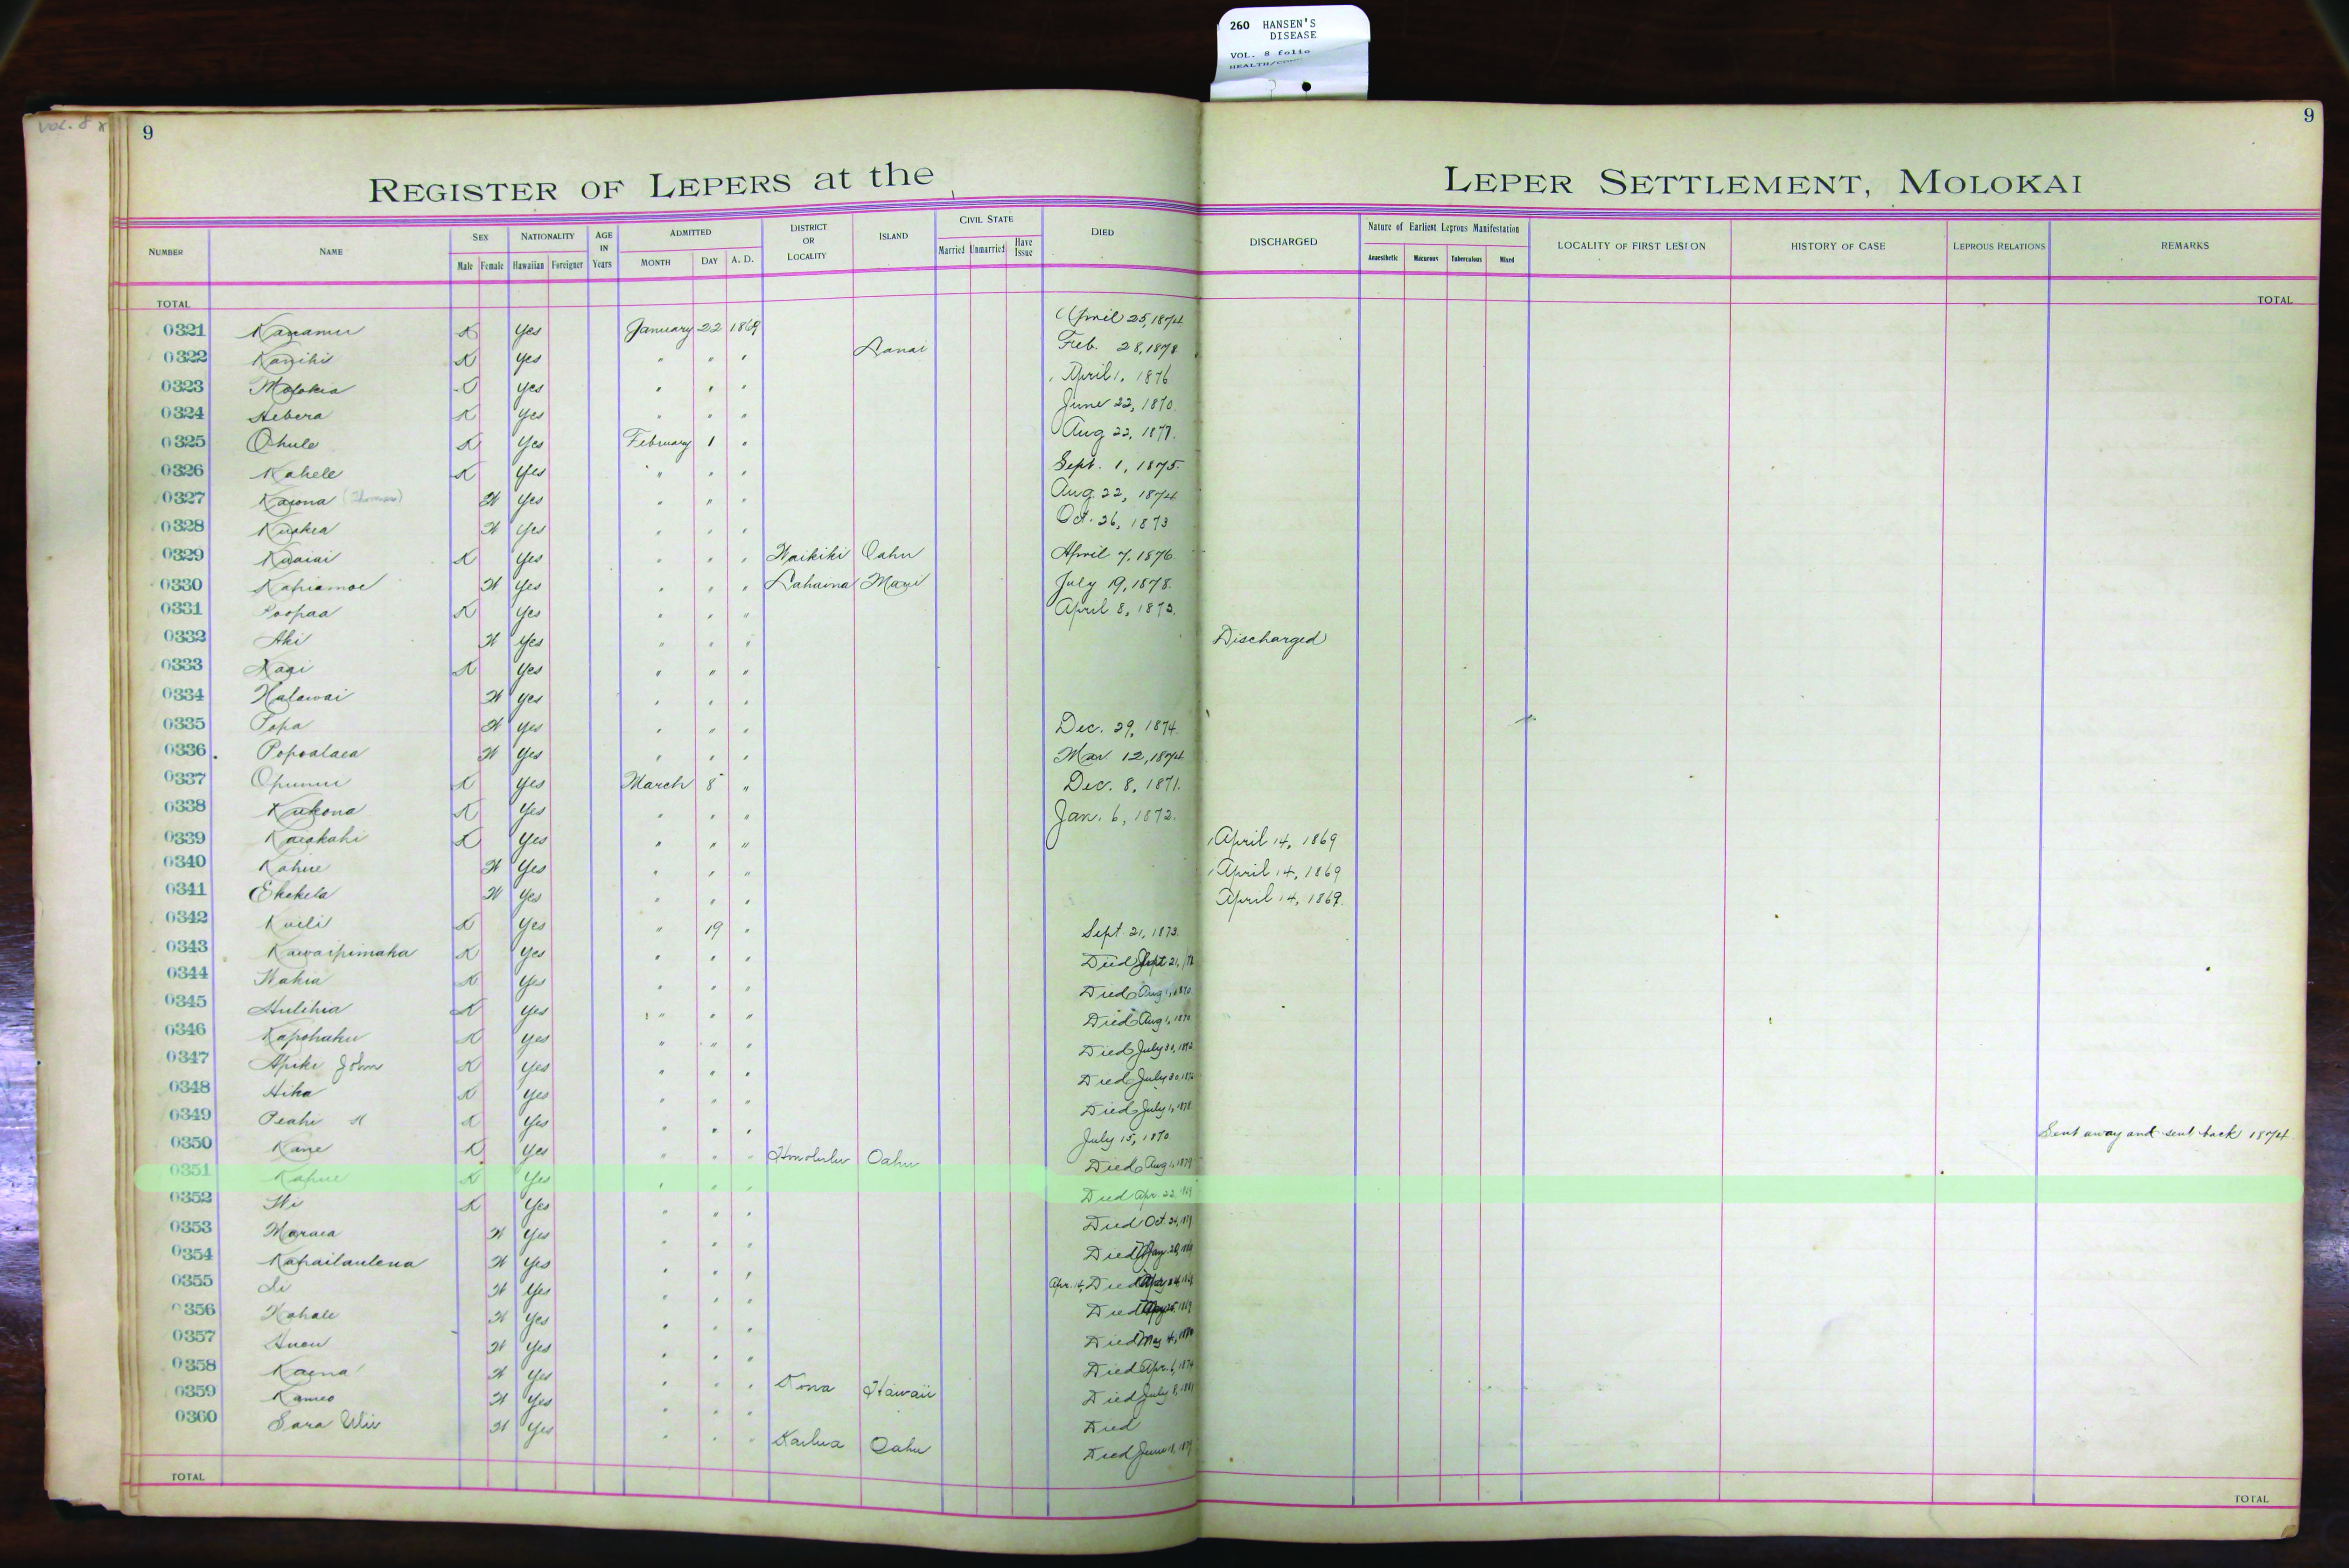 260 HANSEN'S
DISEASE
VOL. 8 folio
VOL. 8
9
9
REGISTER OF LEPERS at the LEPER SETTLEMENT, MOLOKAI
NUMBER NAME SEX NATIONALITY AGE IN Years ADMITTED DISTRICT OR LOCALITY ISLAND CIVIL STATE DIED DISCHARGED Nature of Earliest Leprous Manifestation LOCALITY OF FIRST LESION HISTORY OF CASE LEPROUS RELATIONS REMARKS
Male Female Hawaiian Foreigner MONTH DAY A. D. Married Unmarried Have Issue Anaesthetic Macurous Tuberculous Mixed
TOTAL TOTAL
0321 Kanamu K Yes January 22 1869 April 25, 1874
0322 Kanihi K Yes " " " Lanai Feb. 28, 1878
0323 Molokia Yes " " " April 1, 1876
0324 Hebera K Yes " " " June 22, 1870
0325 Ohule K Yes February 1 " Aug 22, 1877.
0326 Kahele K Yes " " " Sept. 1, 1875.
0327 Yes " " " Aug. 22, 1874
0328 Yes " " " Oct. 26, 1873
0329 K Yes " " " Waikiki Oahu April 7, 1876
0330 Kahiamoe W Yes " " " Lahaina Maui July 19, 1878.
0331 Poopaa K Yes " " " April 8, 1873.
0332 Aki W Yes " " " Discharged
0333 K Yes " " "
0334 Halawai W Yes " " "
0335 Popa W Yes " " " Dec. 29, 1874
0336 Popoalaea W Yes " " " Mar. 12, 1874
0337 Opunui K Yes March 8 " Dec. 8, 1871.
0338 Kukona K Yes " " " Jan. 6, 1872.
0339 Kaiakahi K Yes " " " April 14, 1869
0340 Kahue W Yes " " " April 14, 1869
0341 Ekekela W Yes " " " April 14, 1869
0342 Kuili K Yes " 19 " Sept. 21, 1873.
0343 Kawaipimaka K Yes " " " Died Sept 21,
0344 Wahia K Yes " " " Died Aug 1, 1870
0345 Hulihia K Yes " " " Died Aug 1, 1870
0346 Kapohaku K Yes " " " Died July 30,
0347 Apiki John K Yes " " " Died July 30,
0348 Hika K Yes " " " Died July 1, 1878
0349 Peahi K Yes " " " July 15, 1870 Sent away and sent back 1874
0350 Kane K Yes " " " Honolulu Oahu Died Aug 1, 1879
0351 Kahue K Yes " " " Died Apr. 22,
0352 K Yes " " " Died Oct.
0353 Maraea W Yes " " " Died
0354 Kahailaulena W Yes " " " Apr. 14, Died
0355 Yes " " " Died
0356 Yes " " " Died May 4,
0357 Yes " " " Died Apr. 6, 1874
0358 Kaena W Yes " " " Kona Hawaii Died July 8, 1881
0359 Kameo W Yes " " " Died
0360 Sara W Yes " " " Kailua Oahu Died June
TOTAL TOTAL